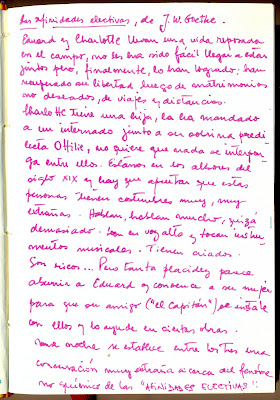 Las afinidades electivas, de J.W. Goethe.
Eduard y Charlotte llevan una vida reposada
en el campo, no les ha sido fácil llegar a estar
juntos pero, finalmente, lo han logrado, han
recuperado su libertad luego de matrimonios
no deseados, de viajes y distancias.
Charlotte tiene una hija, la ha mandado
a un internado junto a su sobrina predi
lecta Ottilie, no quiere que nada se interpon
ga entre ellos. Estamos en los albores del
siglo XIX y hay que apuntar que estas
personas tienen costumbres muy, muy
extrañas. Hablan, hablan mucho, quizá
demasiado. Leen en voz alta y tocan instru
mentos musicales. Tienen criados.
Son ricos... Pero tanta placidez parece
aburrir a Eduard y convence a su mujer
para que su amigo ("el Capitán") se instale
con ellos y lo ayude en ciertas obras.
Una noche se establece entre los tres una
conversación muy extraña acerca del fenóme
no químico de las "AFINIDADES ELECTIVAS":